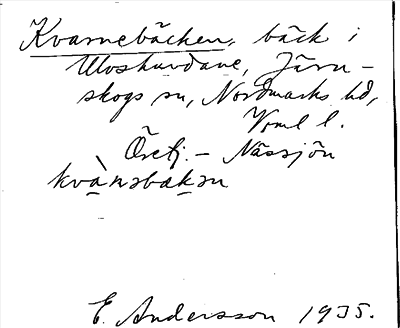 Kvarnebäcken, bäck i
Järn-
skogs sn, Nordmarks hd,
Vrml l.
– Nässjön
kvànsbaksn
E. Andersson 1935.